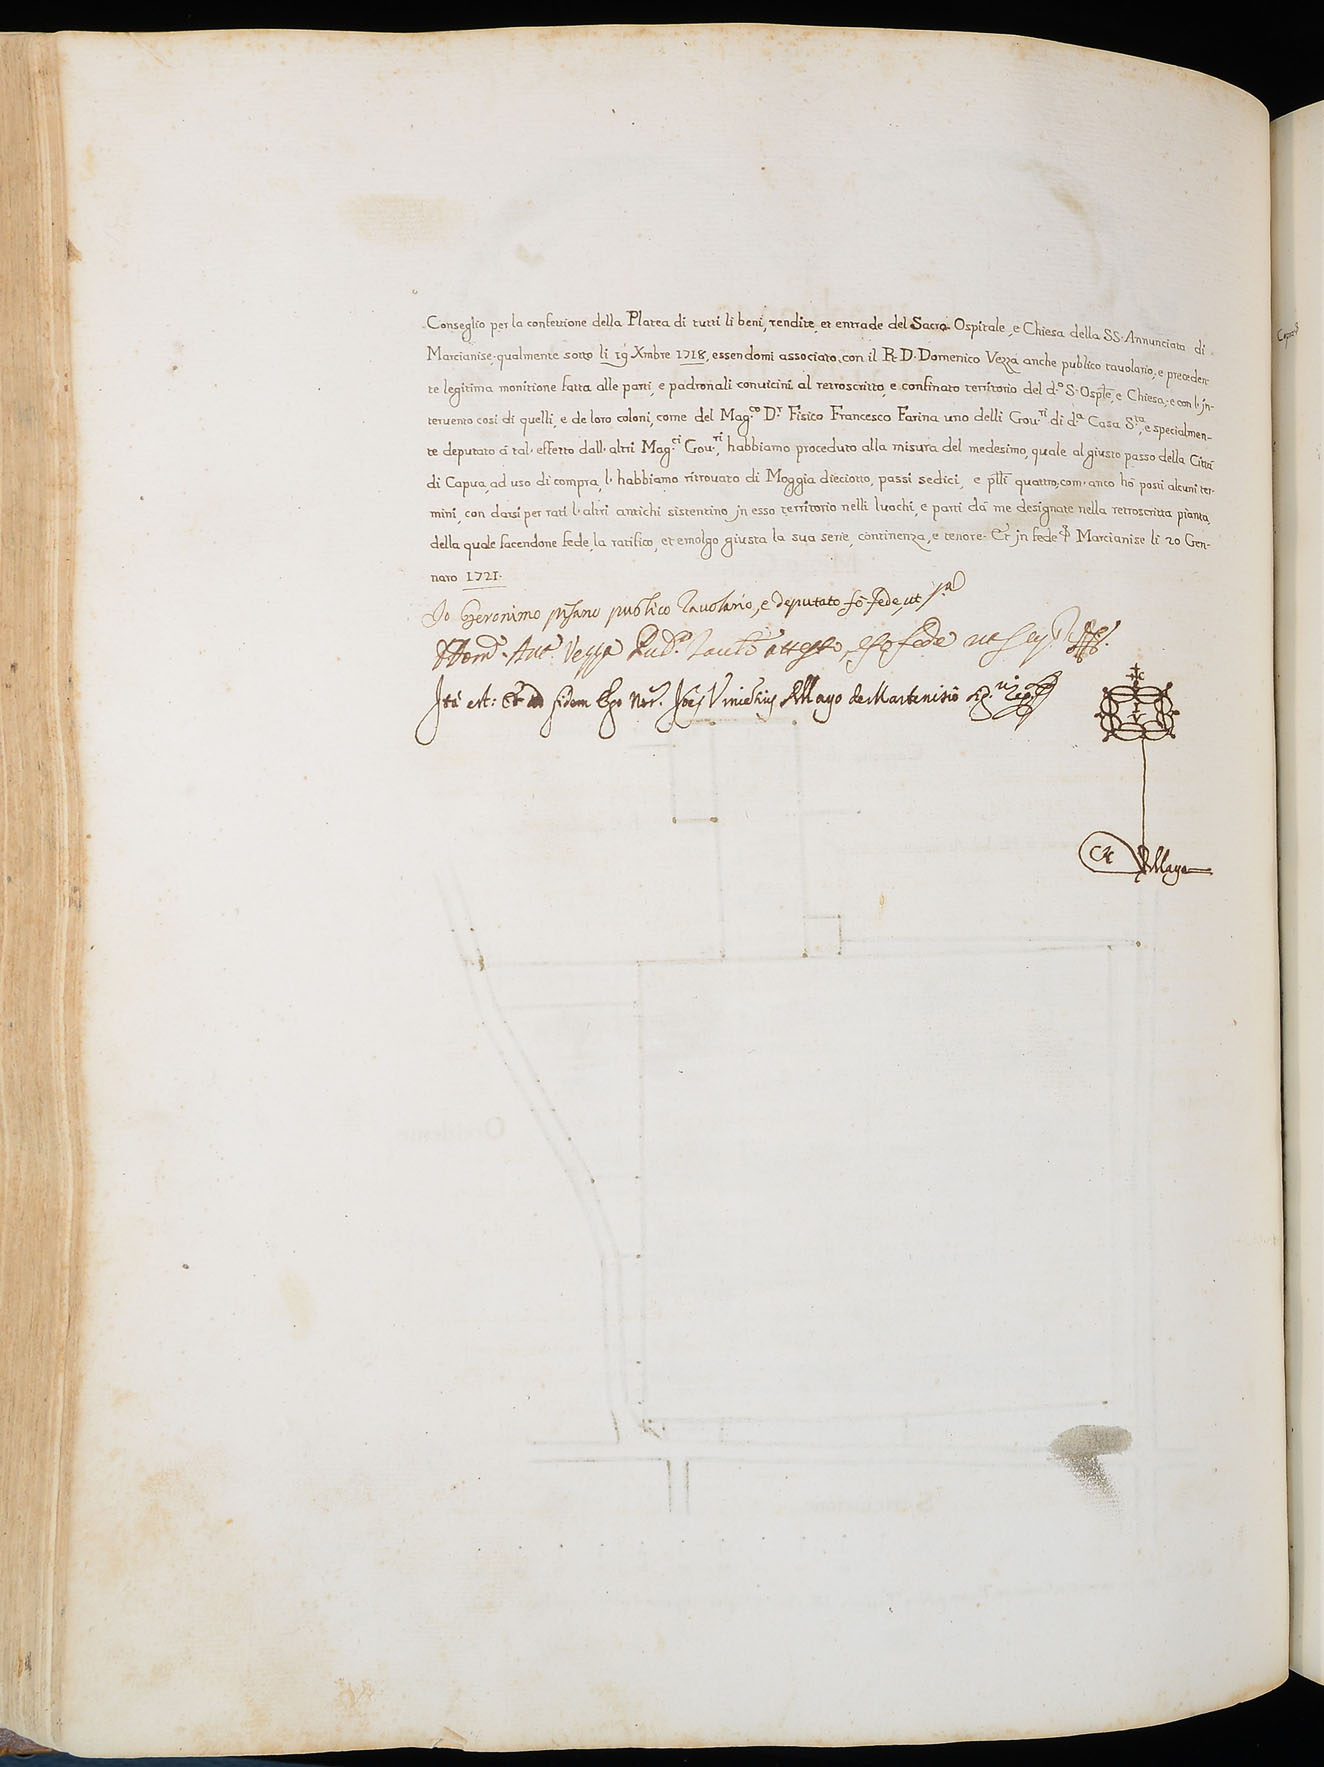 Conseglio per la confettione della Platea di tutti li beni, rendite, et entrade del Sacro Ospitale, e Chiesa della SS. Annunciata di
Marcianise, qualmente sotto li 19 Xmbre 1718, essendomi associato con il R. D. Domenico Vezza anche publico tavolario, e preceden-
te legitima monitione fatta alle parti, e padronali convicini al retroscritto, e confinato territorio del d.º S. Osp̃le, e Chiesa, e con l' jn-
tervento cosi di quelli, e de loro coloni, come del Mag.co D.r Fisico Francesco Farina uno delli Gov.ri di d.a Casa S.ta, e specialmen-
te deputato á tal' effetto dall' altri Mag.ci Gov.ri, habbiamo proceduto alla misura del medesimo, quale al giusto passo della Cittá
di Capua, ad uso di compra, l' habbiamo ritrovato di Moggia dieciotto, passi sedici, e p̃lli quattro, com' anco hó posti alcuni ter-
mini, con darsi per rati l' altri antichi sistentino jn esso territorio nelli luochi, e parti dá me designate nella retroscritta pianta,
della quale facendone fede, la ratifico, et emolgo giusta la sua serie, continenza, e tenore. Et jn fede Marcianise li 20 Gen-
naro 1721.
Io Geronimo pisano publico Tavolario, e deputato fo fede, ut s.a
Ant.º Vezza Pub.º attesto, e fo fede
Ita est: Et fidem Ego Not. Maijo de Martenisio
Maijo